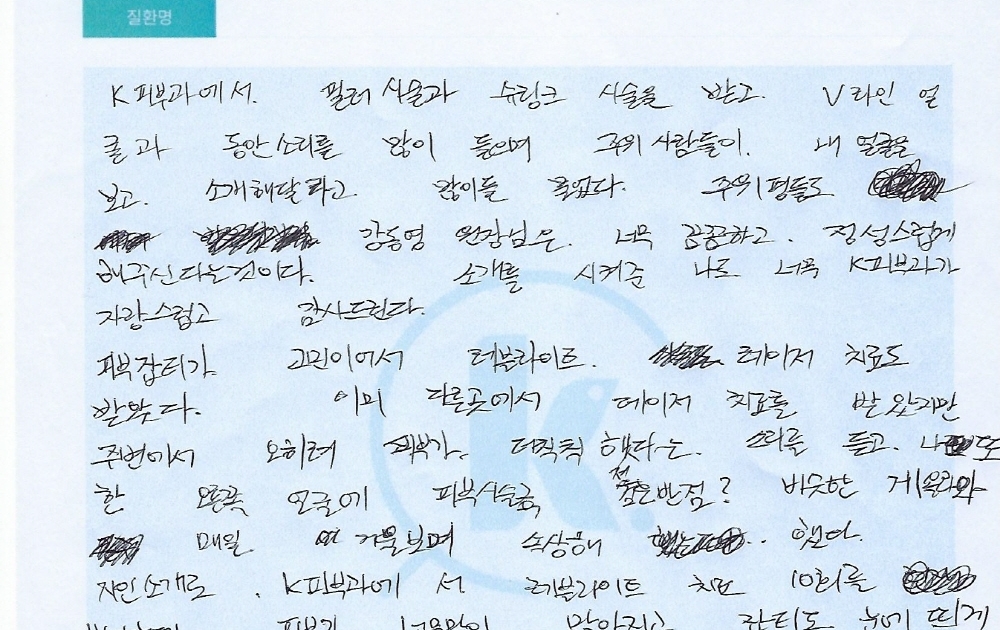 질환명
K피부과에서. 필러 시술과 슈링크 시술을 받고. V라인 얼
굴과 동안소리를 많이 들으며 주위 사람들이. 내 얼굴을
보고. 소개해달라고. 많이들 주위 평들도
강동영 원장님은. 너무 꼼꼼하고. 정성스럽게
해주신다는것이다. 소개를 시켜준 나도 너무 K피부과가
자랑스럽고 감사드린다.
피부잡티가 고민이어서 레블라이트. 레이저 치료도
받았다. 이미 다른곳에서 레이저 치료를 받았지만
주변에서 오히려 피부가. 더칙칙 했다는. 소리를 듣고. 또
한 얼굴에 반점? 비슷한
매일 거울보며 속상해 했다.
지인소개로. K피부과에서 레블라이트 치료 10회를
피부가 맑아지고 잔티도 눈에 띄게